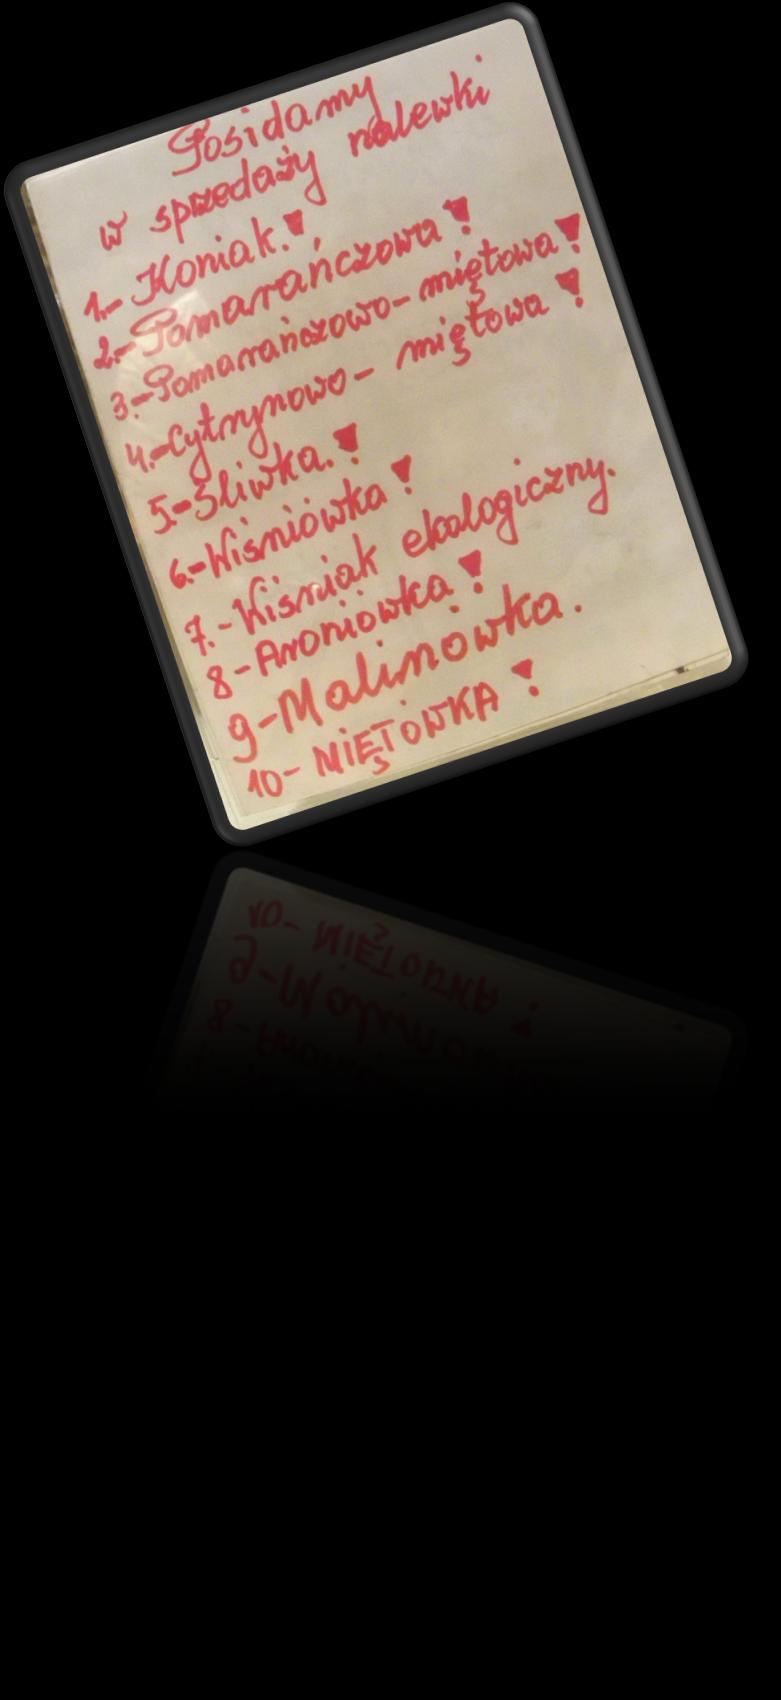 Posidamy
w sprzedaży nalewki
1.- Koniak.!
2.- Pomarańczowa!
3.- Pomarańczowo- miętowa!
4.- Cytrynowo- miętowa!
5.- Śliwka.!
6.- Wiśniówka!
7.- Wiśniak ekologiczny.
8- Aroniówka!
9- Malinówka.
10- MIĘTÓWKA!